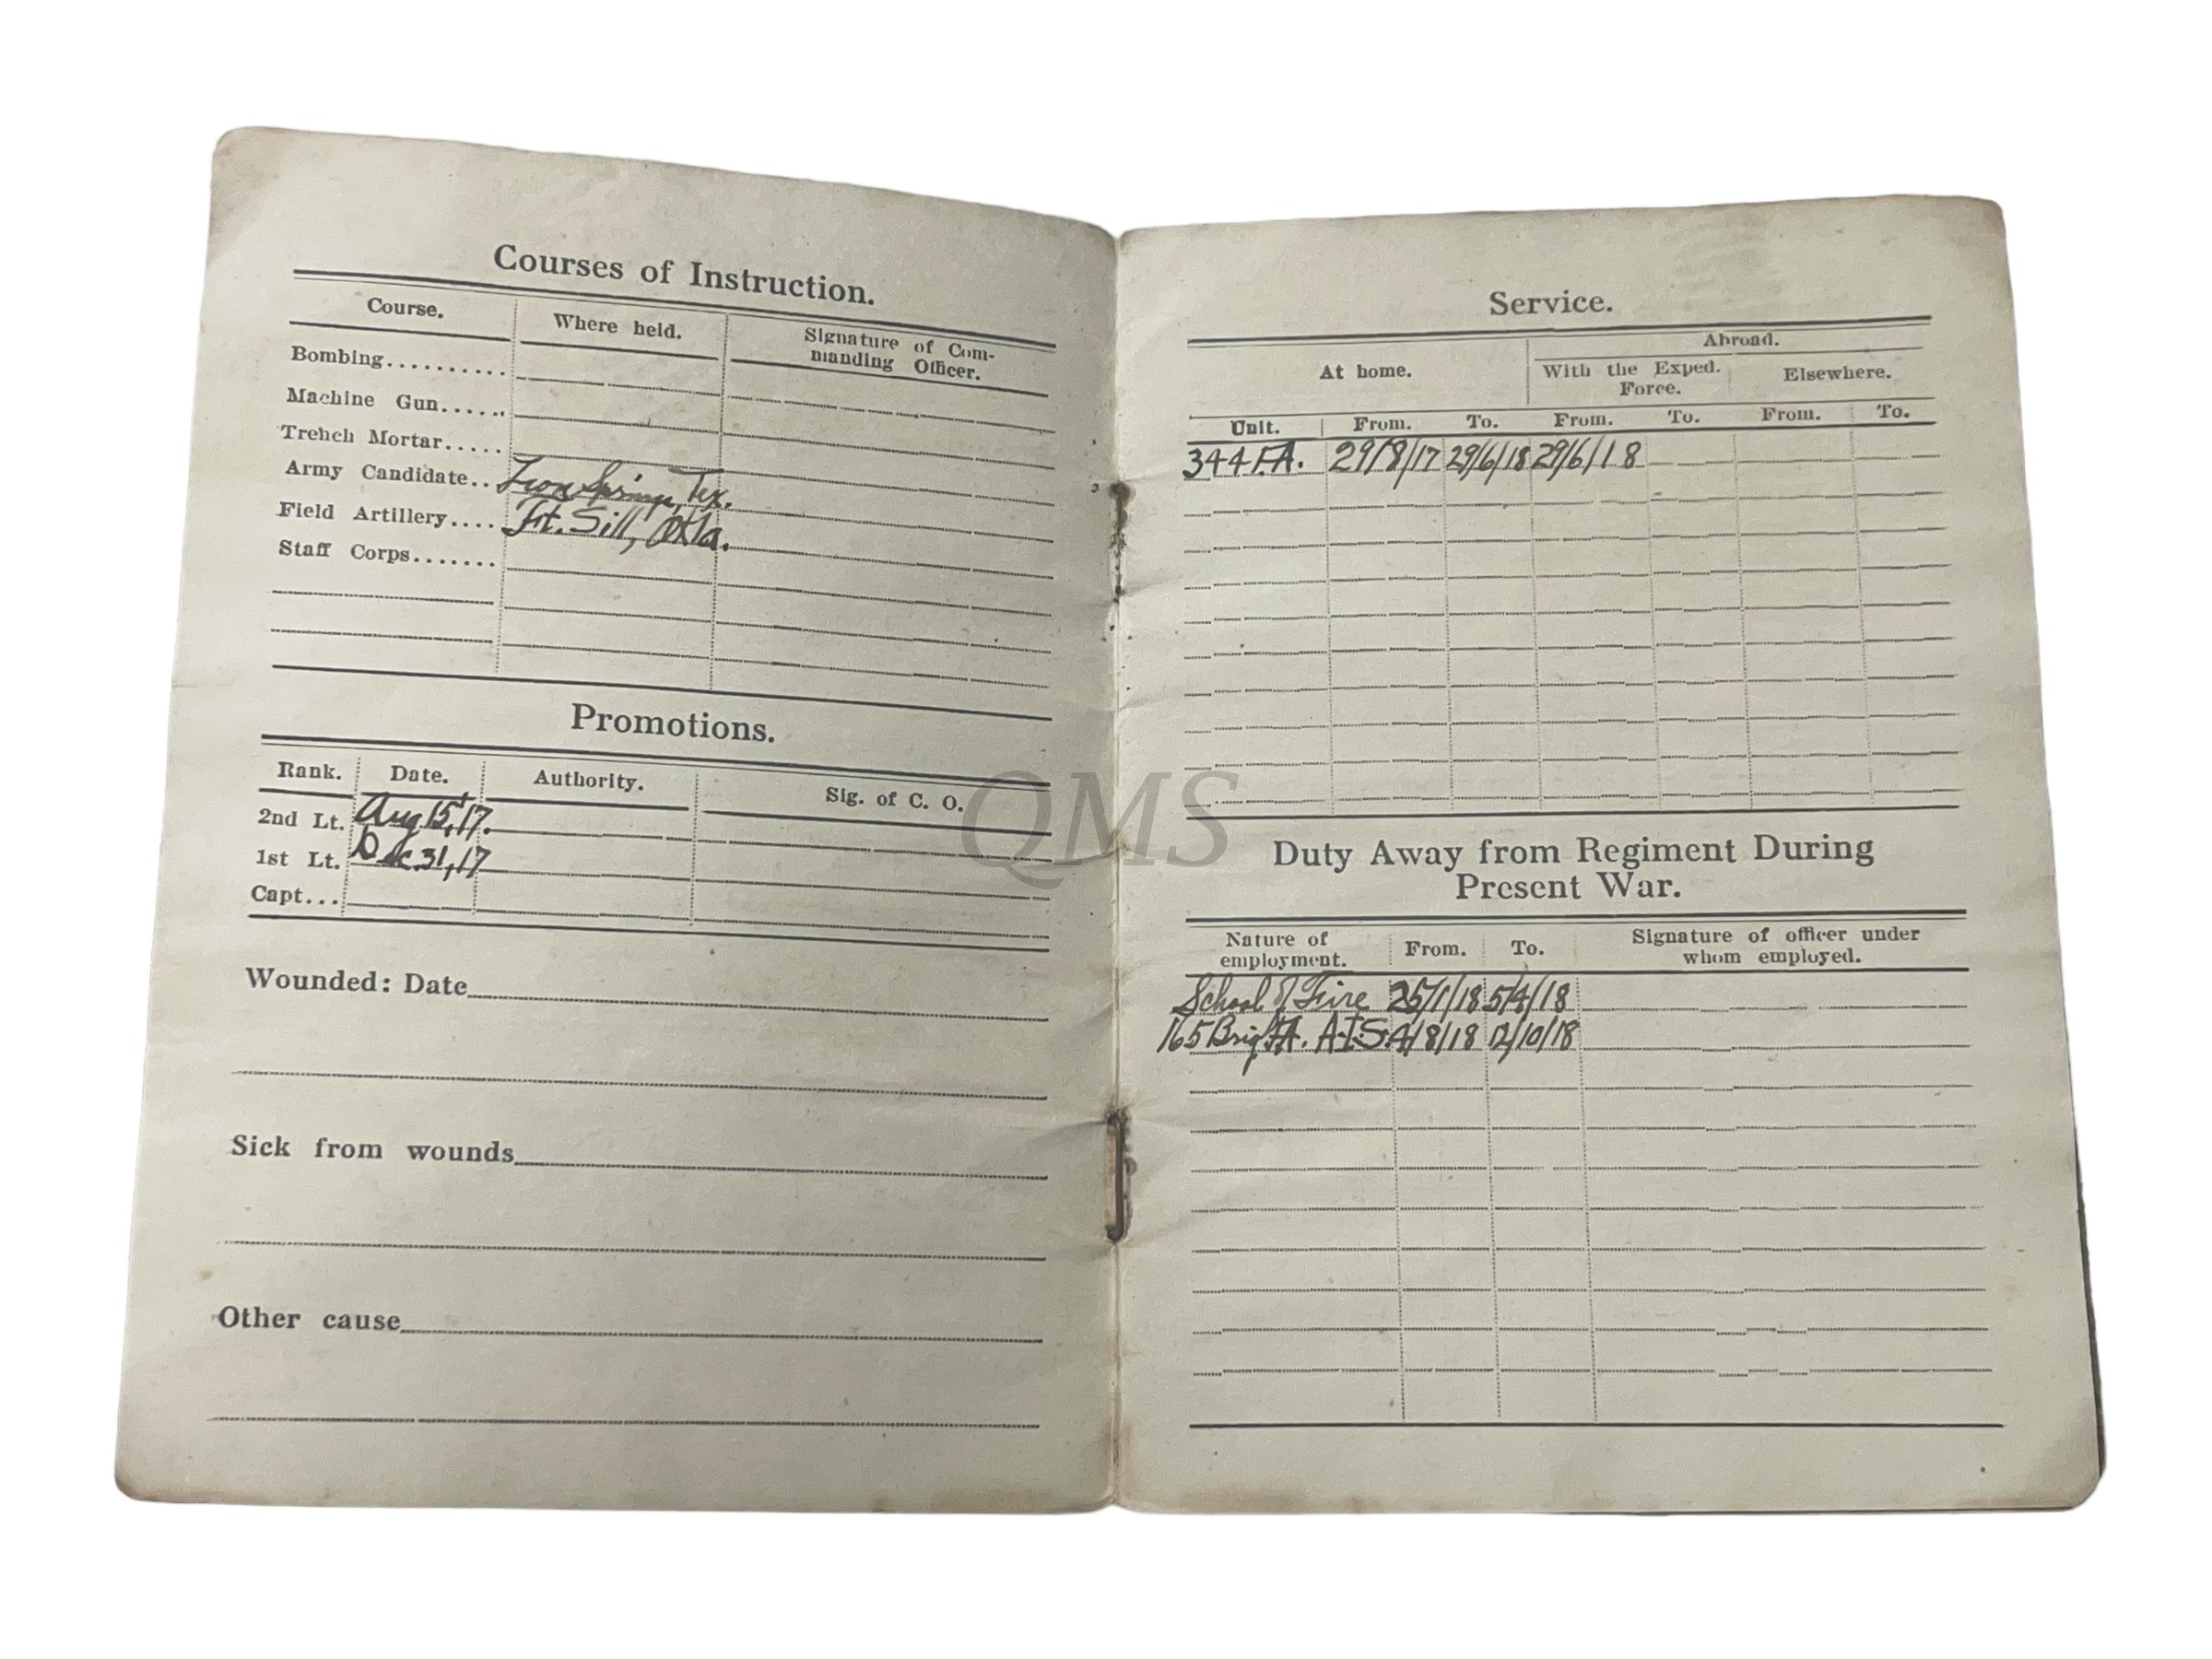 Courses of Instruction.
Course. Where held. Signature of Com-
manding Officer.
Bombing..........
Machine Gun......
Trench Mortar.....
Army Candidate.. Leon Springs, Tex.
Field Artillery.... Ft. Sill, Okla.
Staff Corps.......
Promotions.
Rank. Date. Authority. Sig. of C. O.
2nd Lt. Aug 15, 17.
1st Lt. Dec 31, 17
Capt...
Wounded: Date
Sick from wounds
Other cause
Service.
At home. Abroad.
With the Exped.
Force. Elsewhere.
Unit. From. To. From. To. From. To.
344 F.A. 29/8/17 29/6/18 29/6/18
Duty Away from Regiment During
Present War.
Nature of
employment. From. To. Signature of officer under
whom employed.
School of Fire 25/1/18 5/4/18
165 Brig F.A. A.I.S. 4/8/18 12/10/18
QMS